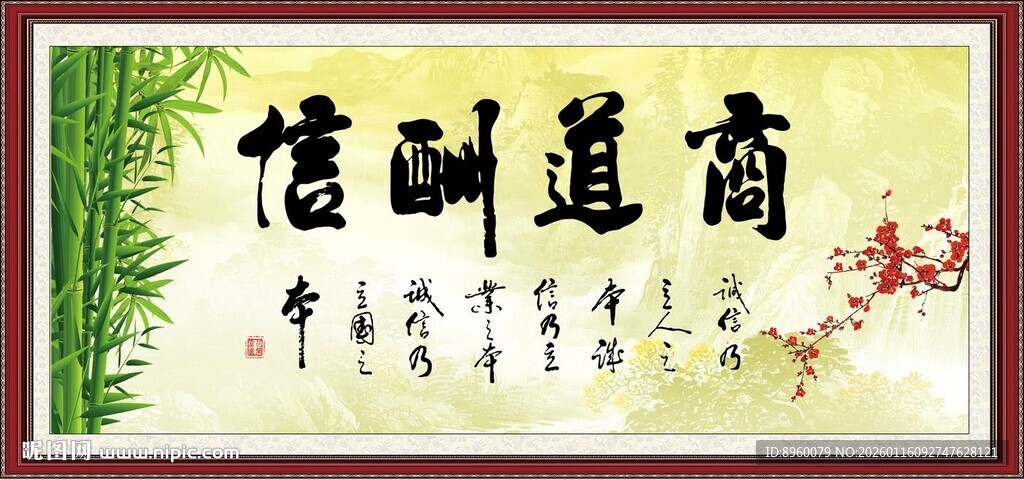 商道酬信
誠信乃
立人之
本誠
信乃立
業之本
誠信乃
立國之
本
昵图网 www.nipic.com
ID:8960079 NO:20260116092747628121